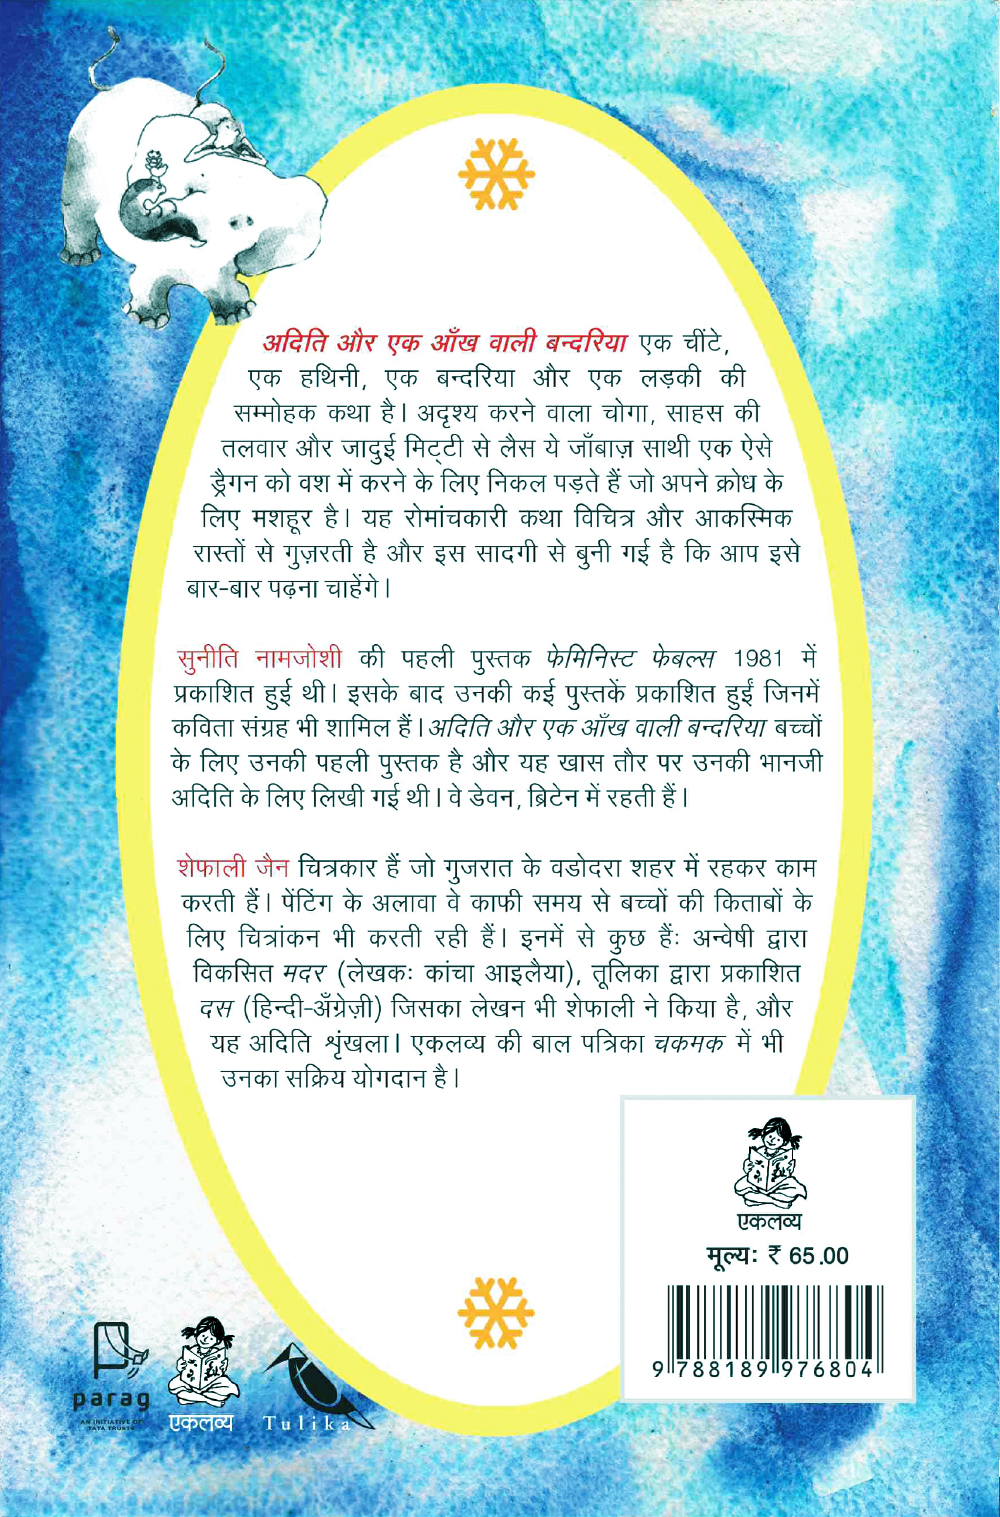 अदिति और एक आँख वाली बन्दरिया एक चींटे,
एक हथिनी, एक बन्दरिया और एक लड़की की
सम्मोहक कथा है। अदृश्य करने वाला चोगा, साहस की
तलवार और जादुई मिट्टी से लैस ये जाँबाज़ साथी एक ऐसे
ड्रैगन को वश में करने के लिए निकल पड़ते हैं जो अपने क्रोध के
लिए मशहूर है। यह रोमांचकारी कथा विचित्र और आकस्मिक
रास्तों से गुज़रती है और इस सादगी से बुनी गई है कि आप इसे
बार-बार पढ़ना चाहेंगे।
सुनीति नामजोशी की पहली पुस्तक फेमिनिस्ट फेबल्स 1981 में
प्रकाशित हुई थी। इसके बाद उनकी कई पुस्तकें प्रकाशित हुईं जिनमें
कविता संग्रह भी शामिल हैं। अदिति और एक आँख वाली बन्दरिया बच्चों
के लिए उनकी पहली पुस्तक है और यह खास तौर पर उनकी भानजी
अदिति के लिए लिखी गई थी। वे डेवन, ब्रिटेन में रहती हैं।
शेफाली जैन चित्रकार हैं जो गुजरात के वडोदरा शहर में रहकर काम
करती हैं। पेंटिंग के अलावा वे काफी समय से बच्चों की किताबों के
लिए चित्रांकन भी करती रही हैं। इनमें से कुछ हैं: अन्वेषी द्वारा
विकसित मदर (लेखक: कांचा आइलैया), तूलिका द्वारा प्रकाशित
दस (हिन्दी-अँग्रेज़ी) जिसका लेखन भी शेफाली ने किया है, और
यह अदिति शृंखला। एकलव्य की बाल पत्रिका चकमक में भी
उनका सक्रिय योगदान है।
एकलव्य
मूल्य: ₹ 65.00
9 788189 976804
parag
AN INITIATIVE OF
TATA TRUSTS
एकलव्य
Tulika